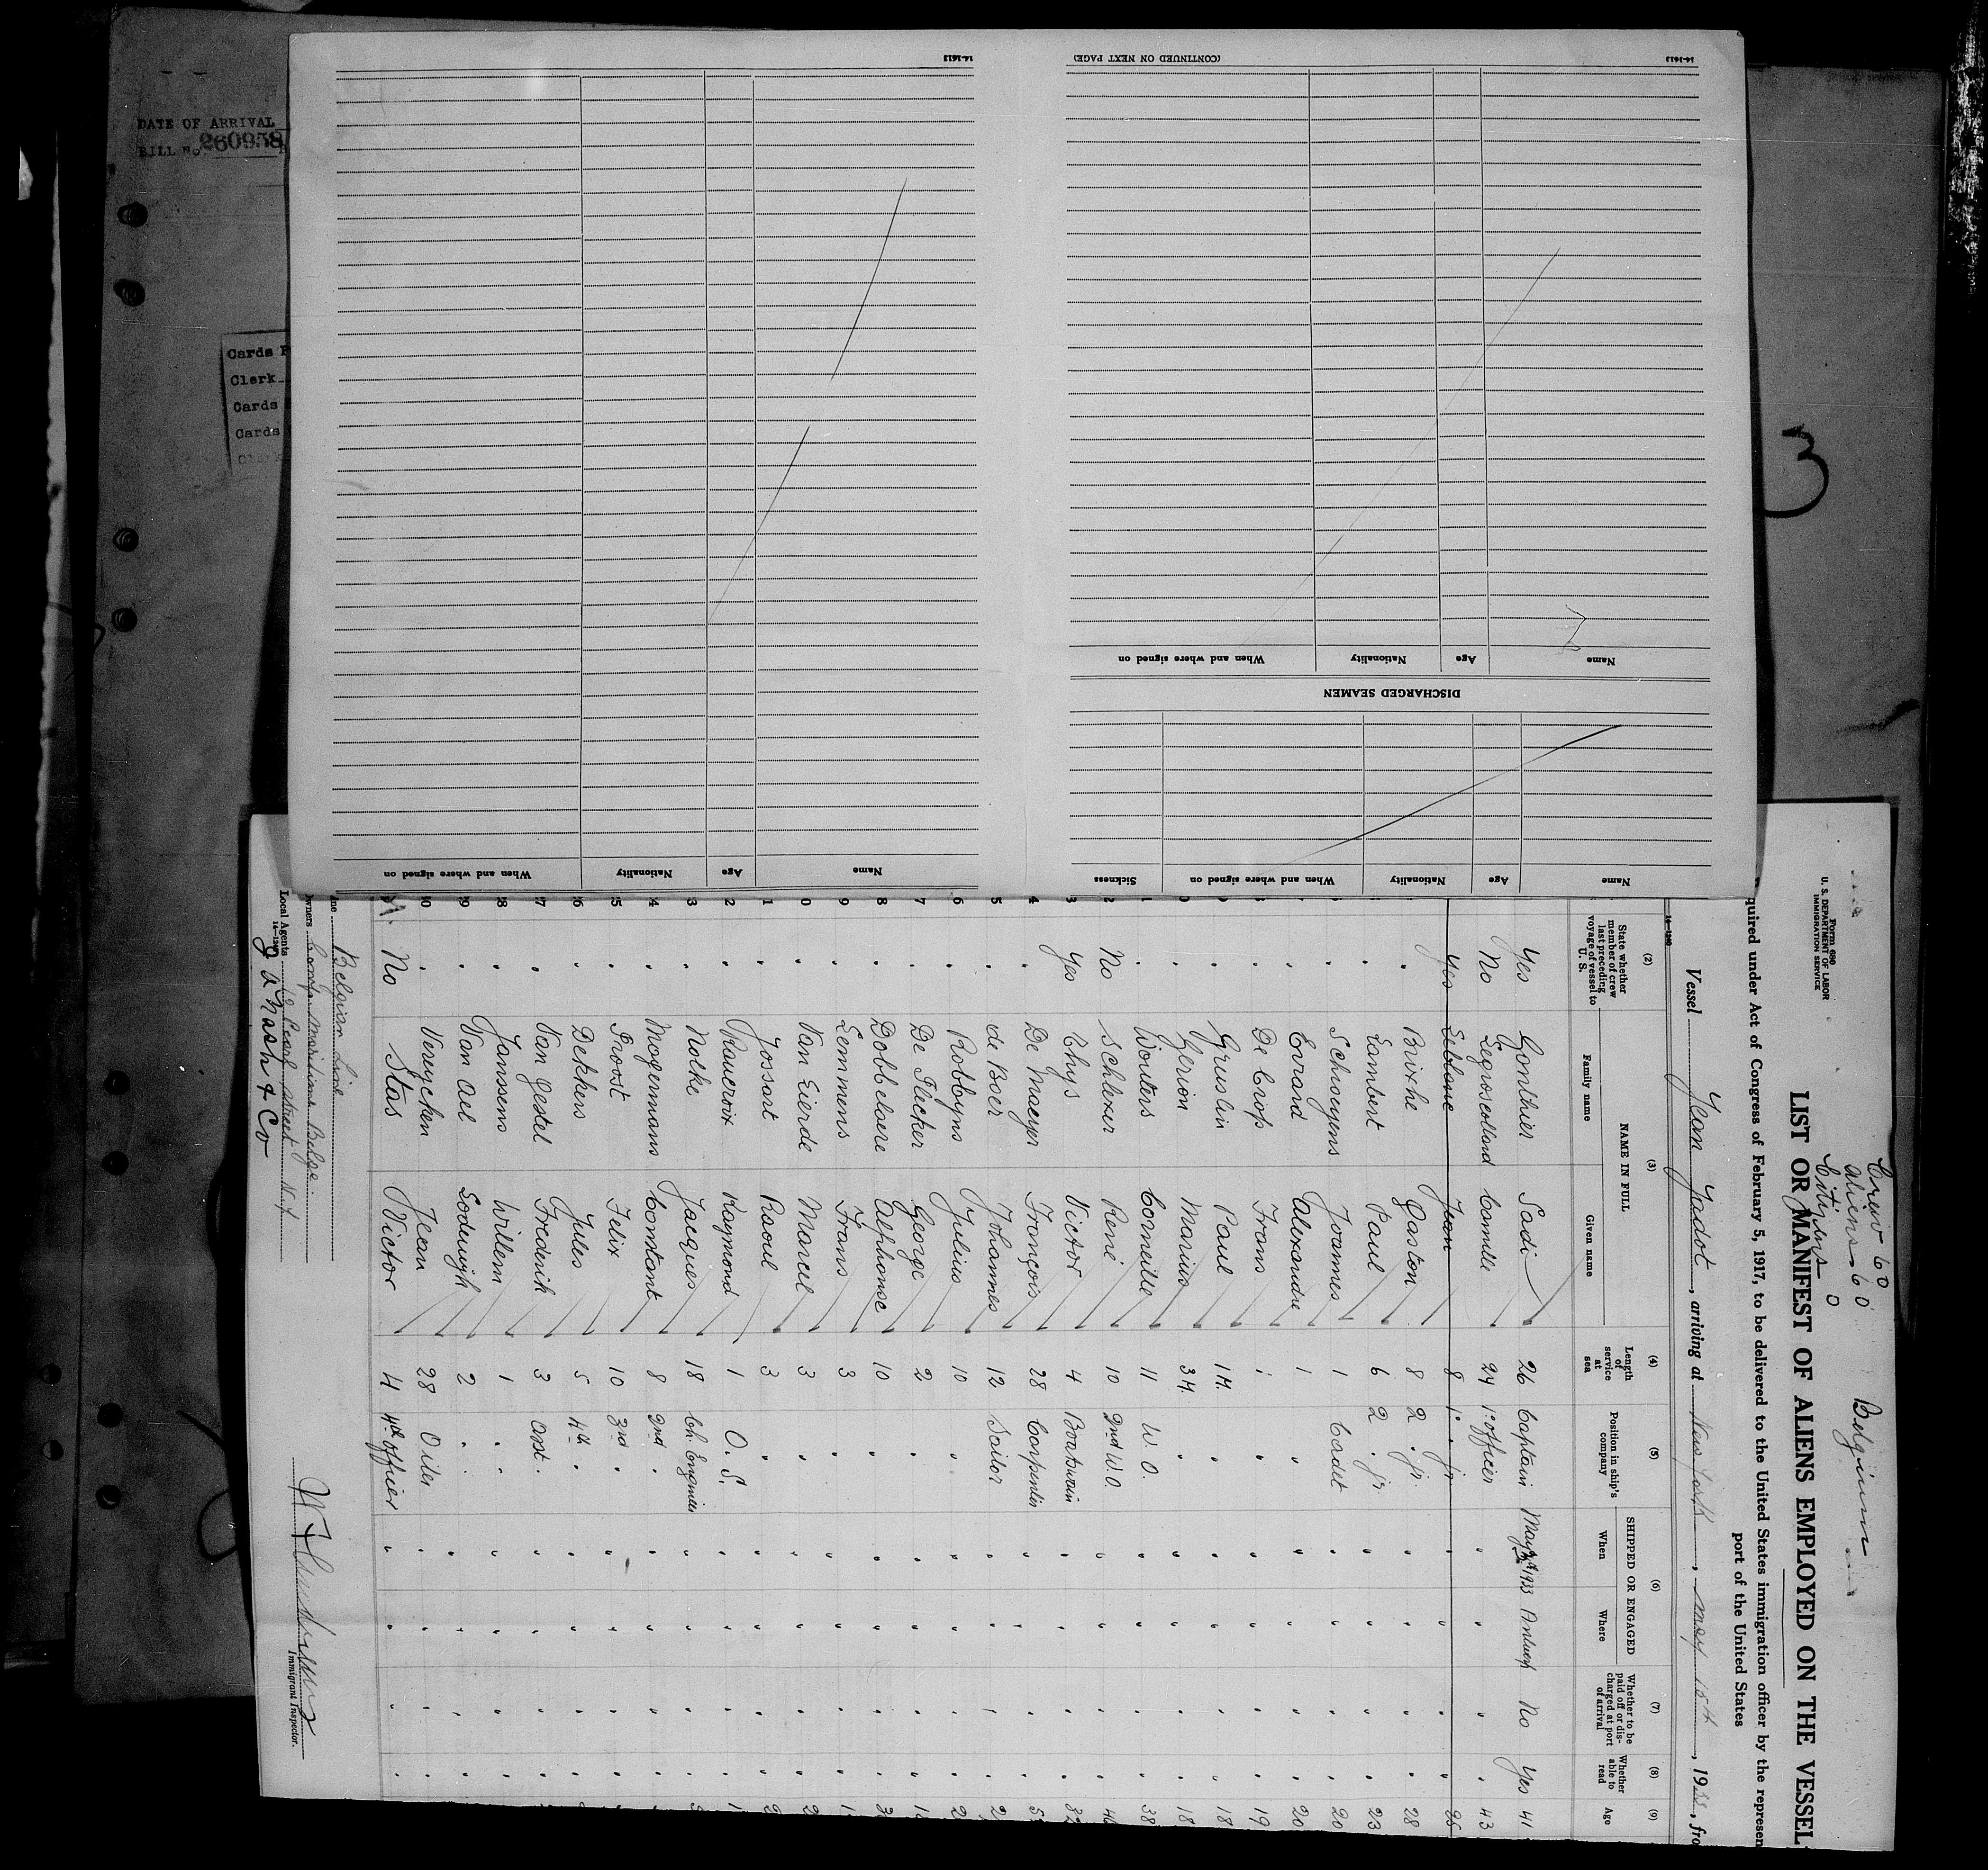 DATE OF ARRIVAL
BILL No. 260958
Cards
Clerk
Cards
Cards
14-1613
(CONTINUED ON NEXT PAGE)
14-1613
Name Age Nationality When and where signed on
DISCHARGED SEAMEN
Name Age Nationality When and where signed on Sickness
Name Age Nationality When and where signed on
3
Crew 60
Aliens 60
Citizens 0
Belgium
Form 680
U. S. DEPARTMENT OF LABOR
IMMIGRATION SERVICE
LIST OR MANIFEST OF ALIENS EMPLOYED ON THE VESSEL
quired under Act of Congress of February 5, 1917, to be delivered to the United States immigration officer by the represen
port of the United States
Vessel Jean Jadot, arriving at New York, May 15th, 1933, fro
14-1240
(2) (3) (4) (5) (6) (7) (8) (9)
State whether member of crew last preceding voyage of vessel to U. S. NAME IN FULL Family name Given name Length of service at sea Position in ship's company SHIPPED OR ENGAGED When Where Whether to be paid off or discharged at port of arrival Whether able to read Age
Yes Gonthier Sadi 26 Captain May 1933 Antwerp No Yes 41
No Legroscollard Camille 24 1° officer " " " " 43
Yes Leblanc Jean 8 1° " jr " " " " 35
" Brixhe Gaston 8 2 " jr " " " " 28
" Lambert Paul 6 2 " jr " " " " 23
" Schroeyens Joannes 1 Cadet " " " " 20
" Evrard Alexandre 1 " " " " " 20
" De Crop Frans " " " " " " 19
" Gruslin Paul 1 M. " " " " " 18
" Gerion Marius 3 M. " " " " " 18
" Wouters Corneille 11 W. O. " " " " 38
No Schlexer René 10 2nd W.O. " " " " 46
Yes Thys Victor 4 Boatswain " " " "
" De Maeyer François 28 Carpenter " " " "
" de Boer Johannes 12 Sailor " " " "
" Robbyns Julius 10 " " " " "
" De Vlecker George 2 " " " " "
" Dobbelaere Alphonse 10 " " " " "
" Lemmens Frans 3 " " " " "
" Van Eierde Marcel 3 " " " " "
" Jossart Raoul 3 " " " " "
" Raucroix Raymond 1 O. S. " " " "
" Nolke Jacques 18 Ch. Engineer " " " "
" Mogermans Constant 8 2nd " " " " "
" Proost Felix 10 3rd " " " " "
" Dekkers Jules 5 4th " " " " "
" Van Gestel Frederik 3 Asst. " " " "
" Janssens Willem 1 " " " " "
" Van Ael Lodewijk 2 " " " " "
" Vereycken Jean 28 Oiler " " " "
No Stas Victor 4 4th officer " " " "
ine Belgian Line
wners Comp. Maritime Belge.
Local Agents Pearl Street N.Y.
14-1240
Immigrant Inspector.